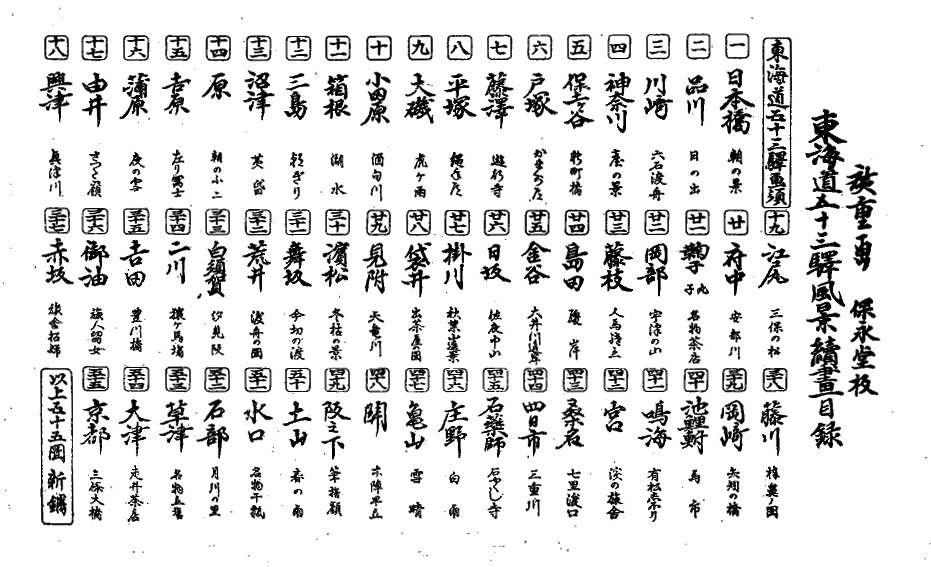 廣重画 保永堂板
東海道五十三驛風景續畫目録
東海道五十三驛画頭
一 日本橋 朝の景
二 品川 日の出
三 川崎 六合渡舟
四 神奈川 臺の景
五 保土ヶ谷 新町橋
六 戸塚
七 藤澤 遊行寺
八 平塚 縄手道
九 大磯 虎ヶ雨
十 小田原 酒匂川
十一 箱根 湖水
十二 三島 朝ぎり
十三 沼津 黄昏
十四 原 朝のふニ
十五 吉原 左り冨士
十六 蒲原 夜の雪
十七 由井 さつた嶺
十八 興津 興津川
十九 江尻 三保の松
廿 府中 安部川
廿一 鞠子 丸子 名物茶店
廿二 岡部 宇津の山
廿三 藤枝 人馬継立
廿四 島田 駿岸
廿五 金谷 大井川遠岸
廿六 日坂 佐夜中山
廿七 掛川 秋葉山遠景
廿八 袋井 出茶屋の図
廿九 見附 天竜川
三十 濱松 冬枯の景
三十一 舞坂 今切の渡
三十二 荒井 渡舟の図
三十三 白須賀 汐見阪
三十四 二川 猿ヶ馬場
三十五 吉田 豊川橋
三十六 御油 旅人留女
三十七 赤坂 旅舎招婦
三十八 藤川 棒鼻ノ図
三十九 岡崎 矢矧の橋
四十 池鯉鮒 馬市
四十一 鳴海 有松絞り
四十二 宮 濱の旅舎
四十三 桑名 七里渡口
四十四 四日市 三重川
四十五 石薬師 石やくし寺
四十六 庄野 白雨
四十七 亀山 雪晴
四十八 関 本陣早立
四十九 阪之下 筆捨嶺
五十 土山 春の雨
五十一 水口 名物干瓢
五十二 石部 目川の里
五十三 草津 名物立場
五十四 大津 走井茶店
五十五 京都 三條大橋
以上五十五図 新鐫